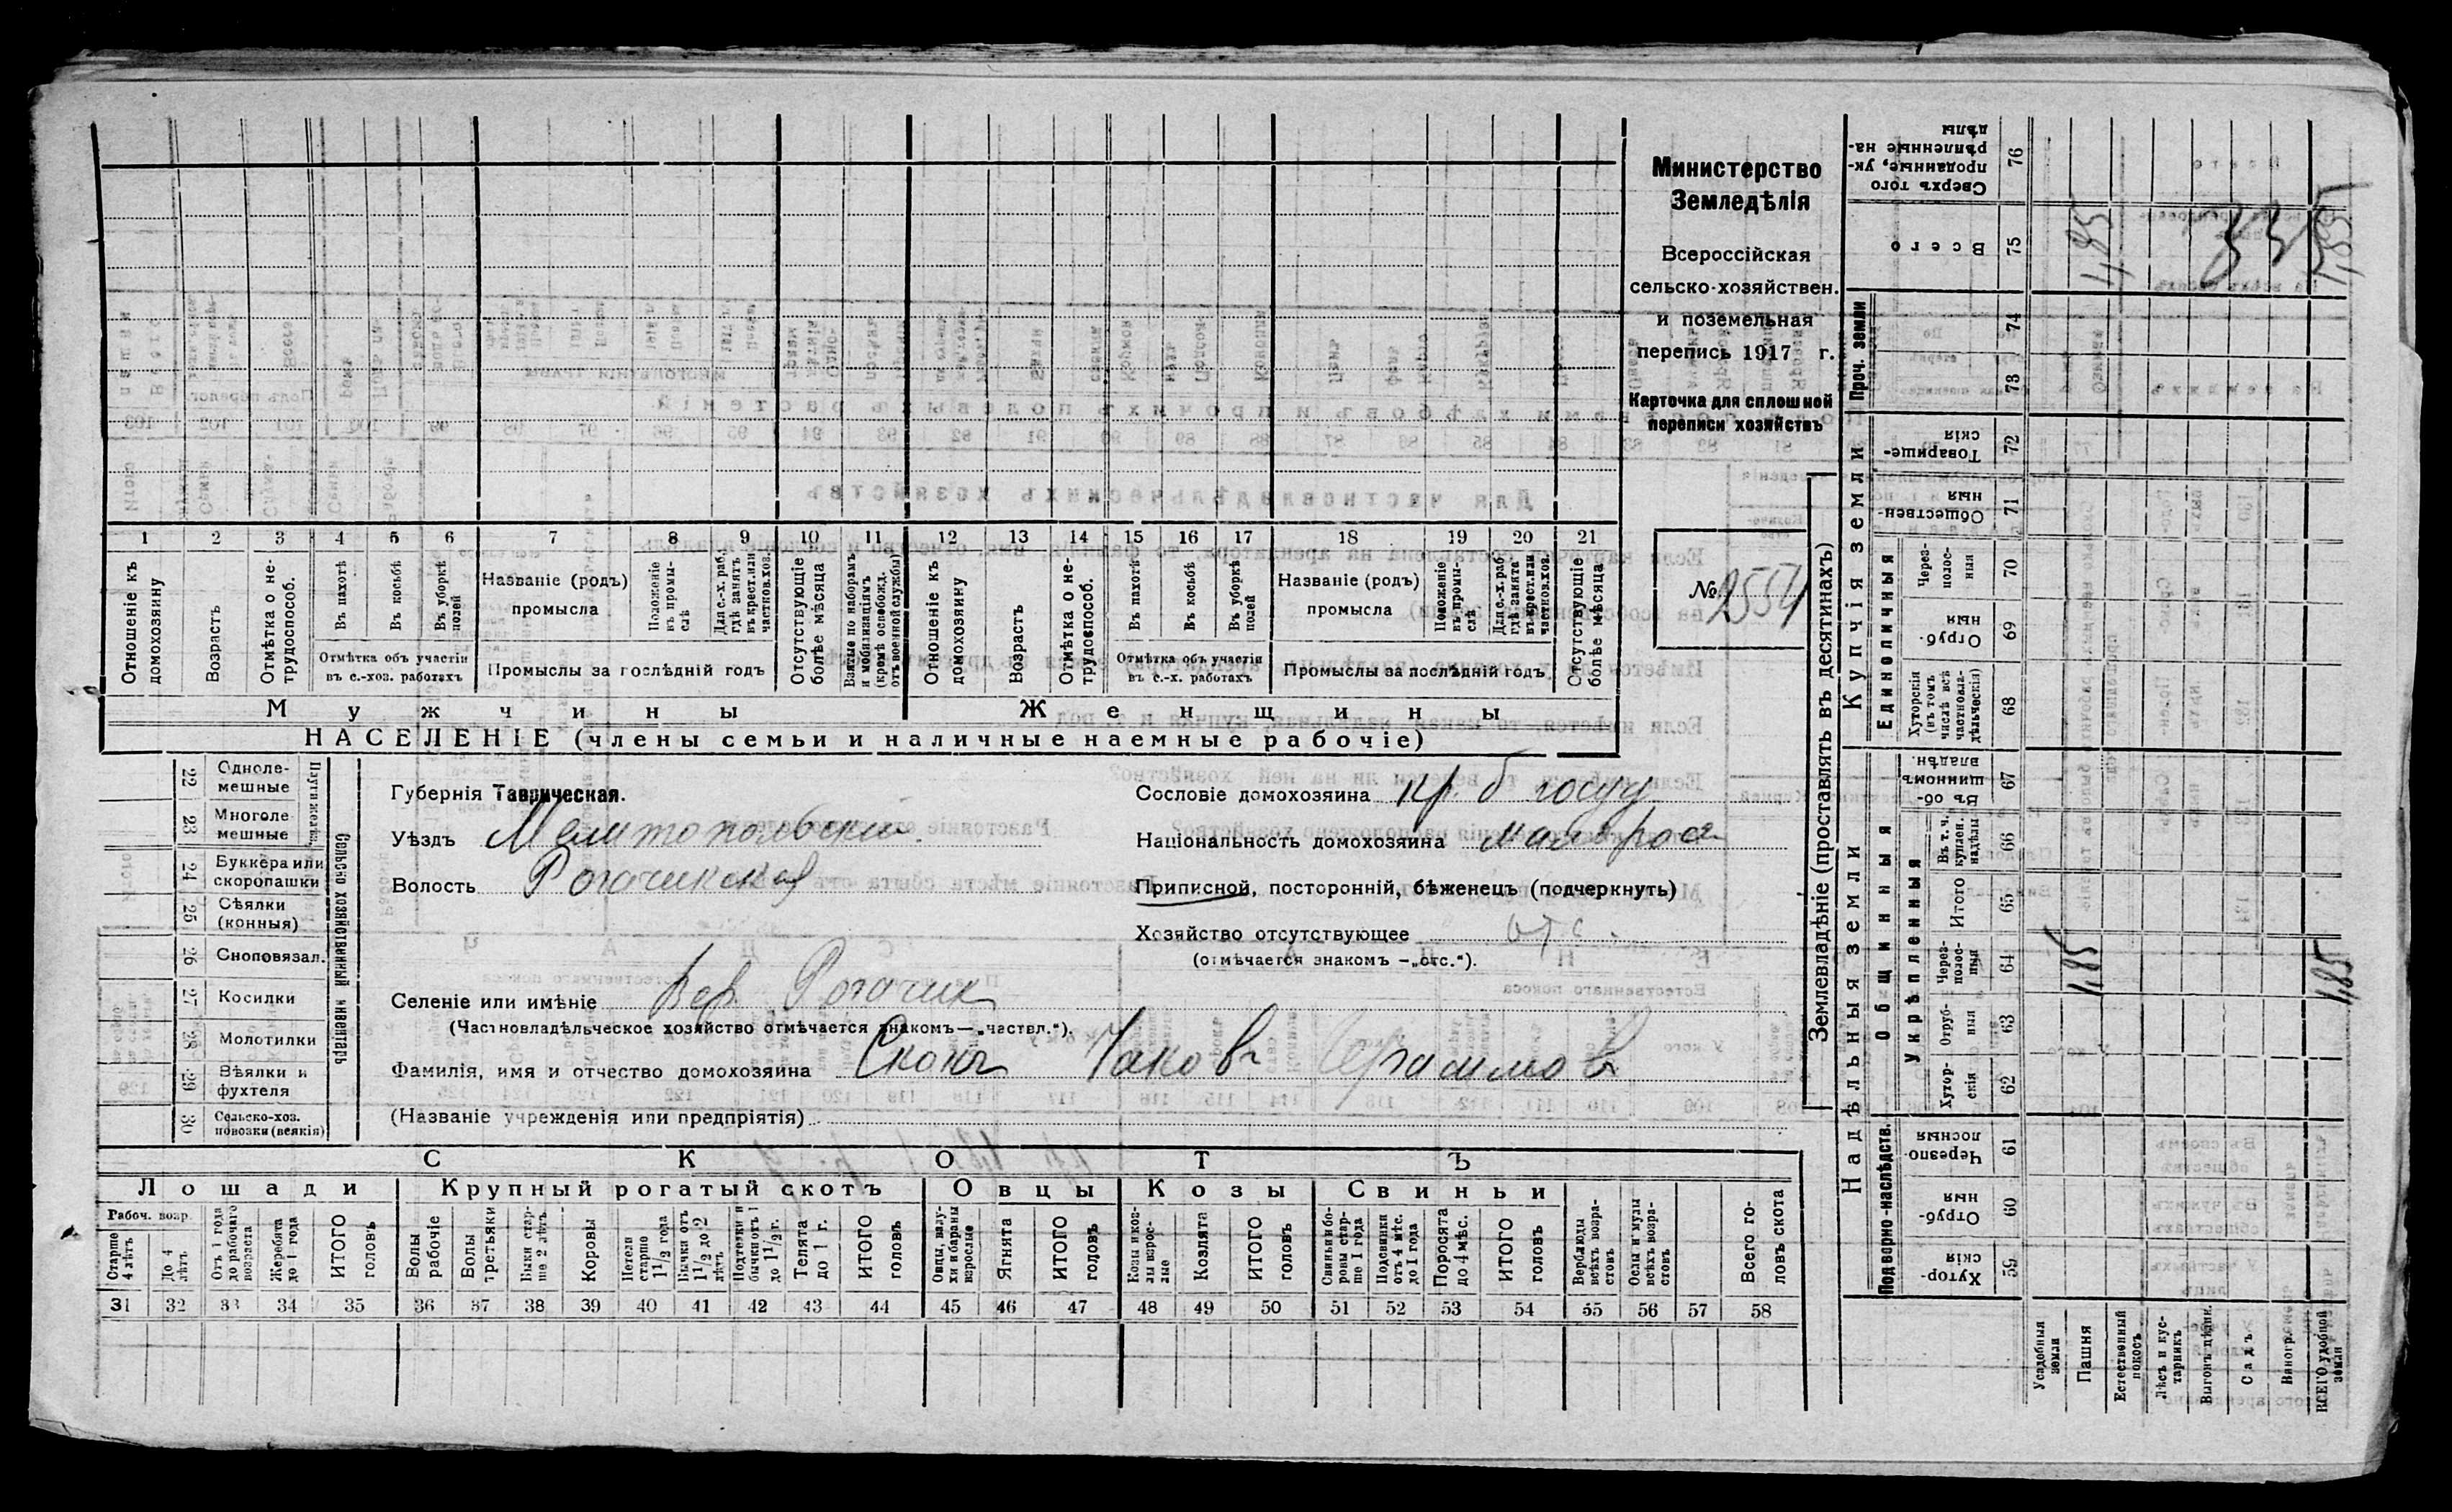 Министерство
Земледѣлія
Всероссійская
сельско-хозяйствен.
и поземельная
перепись 1917 г.
Карточка для сплошной
переписи хозяйствъ
№ 2554
1 2 3 4 5 6 7 8 9 10 11 12 13 14 15 16 17 18 19 20 21
Отношеніе къ домохозяину
Возрастъ
Отмѣтка о не-трудоспособ.
Въ пахотѣ
Въ косьбѣ
Въ уборкѣ полей
Отмѣтка объ участіи въ с.-хоз. работахъ
Названіе (родъ) промысла
Положеніе въ промы-слѣ
Для с.-х. раб. гдѣ занятъ въ крест. или частнов. хоз.
Промыслы за послѣдній годъ
Отсутствующіе болѣе мѣсяца
Взятые по наборамъ и мобилизаціямъ (кромѣ освобожд. отъ военной службы)
Отношеніе къ домохозяину
Возрастъ
Отмѣтка о не-трудоспособ.
Въ пахотѣ
Въ косьбѣ
Въ уборкѣ полей
Отмѣтка объ участіи въ с.-х. работахъ
Названіе (родъ) промысла
Положеніе въ промы-слѣ
Для с.-х. раб. гдѣ занята въ крест. или частнов. хоз.
Промыслы за послѣдній годъ
Отсутствующіе болѣе мѣсяца
Мужчины Женщины
НАСЕЛЕНІЕ (члены семьи и наличные наемные рабочіе)
Сельско хозяйственный инвентарь
22 Одноле-мешные
23 Многоле-мешные
24 Буккера или скоропашки
25 Сѣялки (конныя)
26 Сноповязал.
27 Косилки
28 Молотилки
29 Вѣялки и фухтеля
30 Сельско-хоз. повозки (всякія)
Губернія Таврическая.
Уѣздъ Мелитопольскій
Волость Рогачикская
Селеніе или имѣніе Вер. Рогачик
(Частновладѣльческое хозяйство отмѣчается знакомъ—„частвл.").
Фамилія, имя и отчество домохозяина Скокъ Яковъ Герасимов
(Названіе учрежденія или предпріятія)
Сословіе домохозяина кр. б госуд
Національность домохозяина малорос
Приписной, посторонній, бѣженецъ (подчеркнуть)
Хозяйство отсутствующее отс.
(отмѣчается знакомъ —„отс.").
СКОТЪ
Лошади Крупный рогатый скотъ Овцы Козы Свиньи
Рабоч. возр.
Старше 4 лѣтъ
До 4 лѣтъ
Отъ 1 года до рабочаго возраста
Жеребята до 1 года
ИТОГО головъ
Волы рабочіе
Волы третьяки
Быки стар-ше 2 лѣтъ
Коровы
Нетели старше 1 1/2 года
Бычки отъ 1 1/2 до 2 лѣтъ
Подтелки и бычки отъ 1 до 1 1/2 г.
Телята до 1 г.
ИТОГО головъ
Овцы, валу-хи и бараны взрослые
Ягнята
ИТОГО головъ
Козы и коз-лы взрос-лые
Козлята
ИТОГО головъ
Свиньи и бо-ровы стар-ше 1 года
Подсвинки отъ 4 мѣс. до 1 года
Поросята до 4 мѣс.
ИТОГО головъ
Верблюды всѣхъ возра-стовъ
Ослы и мулы всѣхъ возра-стовъ
Всего го-ловъ скота
31 32 33 34 35 36 37 38 39 40 41 42 43 44 45 46 47 48 49 50 51 52 53 54 55 56 57 58
Землевладѣніе (проставлять въ десятинахъ)
Надѣльныя земли
Купчія земли
Проч. земли
Подворно-наслѣдств.
Общинныя
Укрѣпленныя
Единоличныя
Сверхъ того проданные, ук-рѣпленные на-дѣлы 76
Всего 75
74
73
Товарище-скія 72
Обществен-ныя 71
Через-полос-ныя 70
Отруб-ныя 69
Хуторскія (въ томъ числѣ всѣ частновла-дѣльческія) 68
Въ об-щинномъ владѣн. 67
Въ т. ч. куплен. надѣлы 66
Итого 65
Через-полос-ныя 64
Отруб-ныя 63
Хутор-скія 62
Черезпо-лосныя 61
Отруб-ныя 60
Хутор-скія 59
Усадебныя земли
Пашня
Естественный покосъ
Лѣсъ и кус-тарникъ
Выгонъ
Садъ
Виногр.
ВСЕГО удобной земли
1,85
33
1,85
1,85
1,85